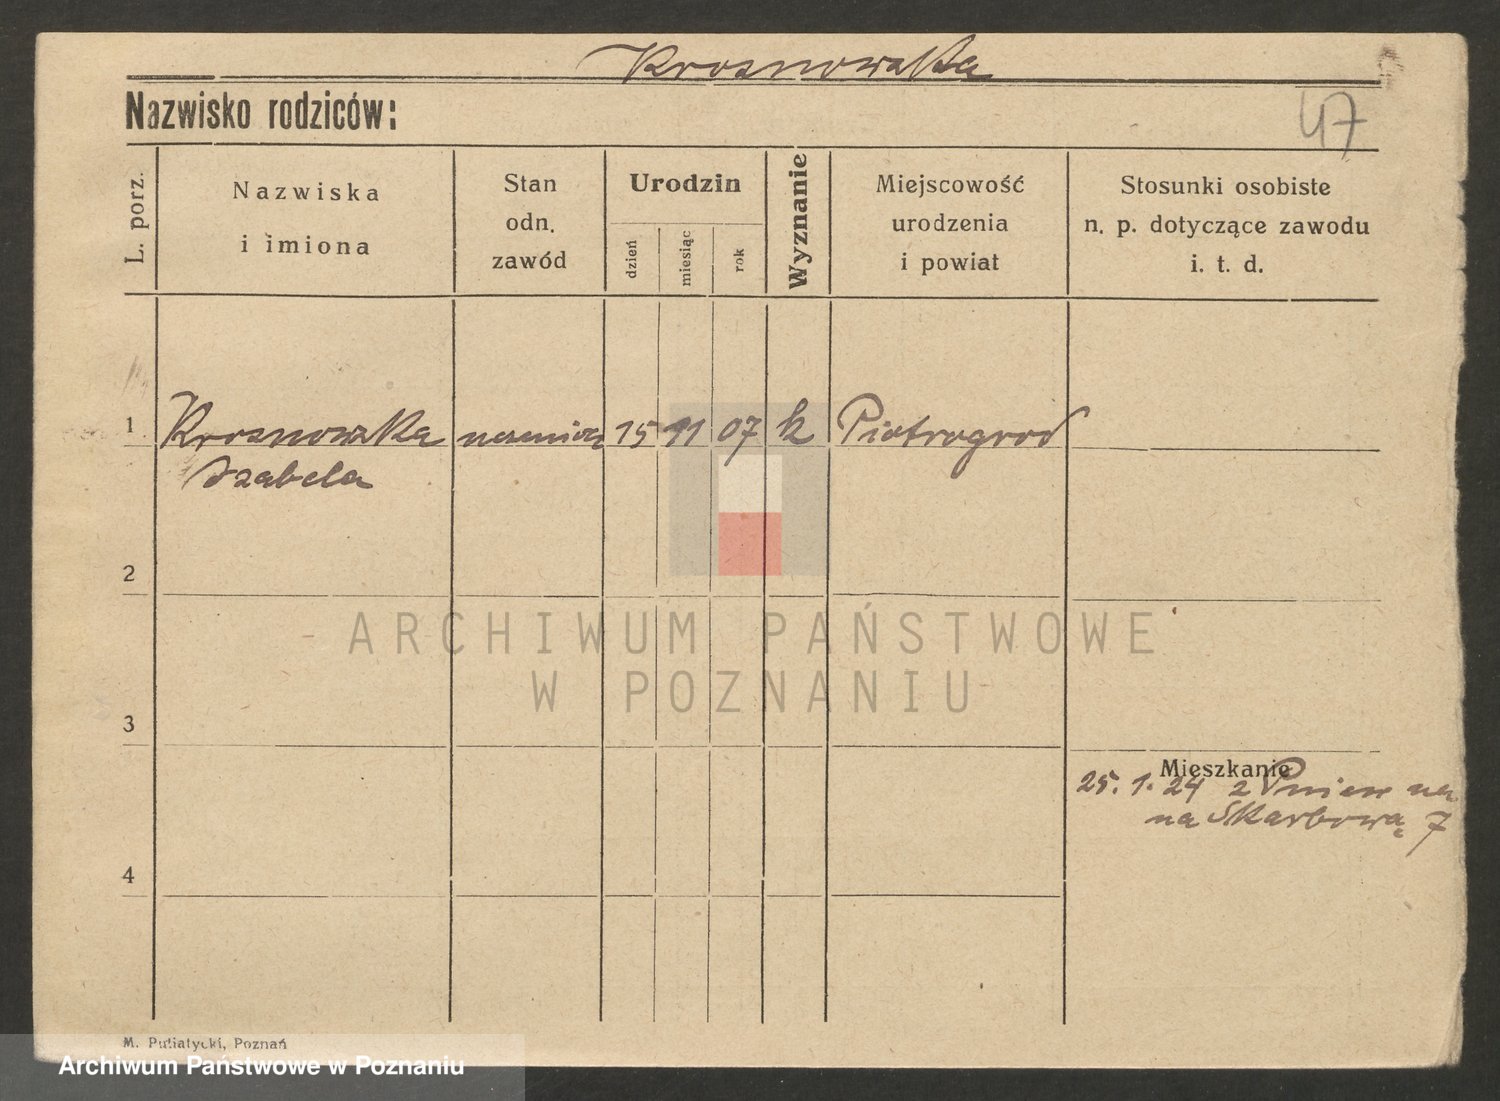 Krosnowska
Nazwisko rodziców:
47
L. porz.
Nazwiska
i imiona
Stan
odn.
zawód
Urodzin
dzień
miesiąc
rok
Wyznanie
Miejscowość
urodzenia
i powiat
Stosunki osobiste
n. p. dotyczące zawodu
i. t. d.
1 Krosnowska uczenica 15 11 07 k Piotrogrod
Izabela
2
ARCHIWUM PAŃSTWOWE
W POZNANIU
3
Mieszkanie
25. 1. 24 z Pniew na
na Skarbową 7
4
M. Putiatycki, Poznań
Archiwum Państwowe w Poznaniu